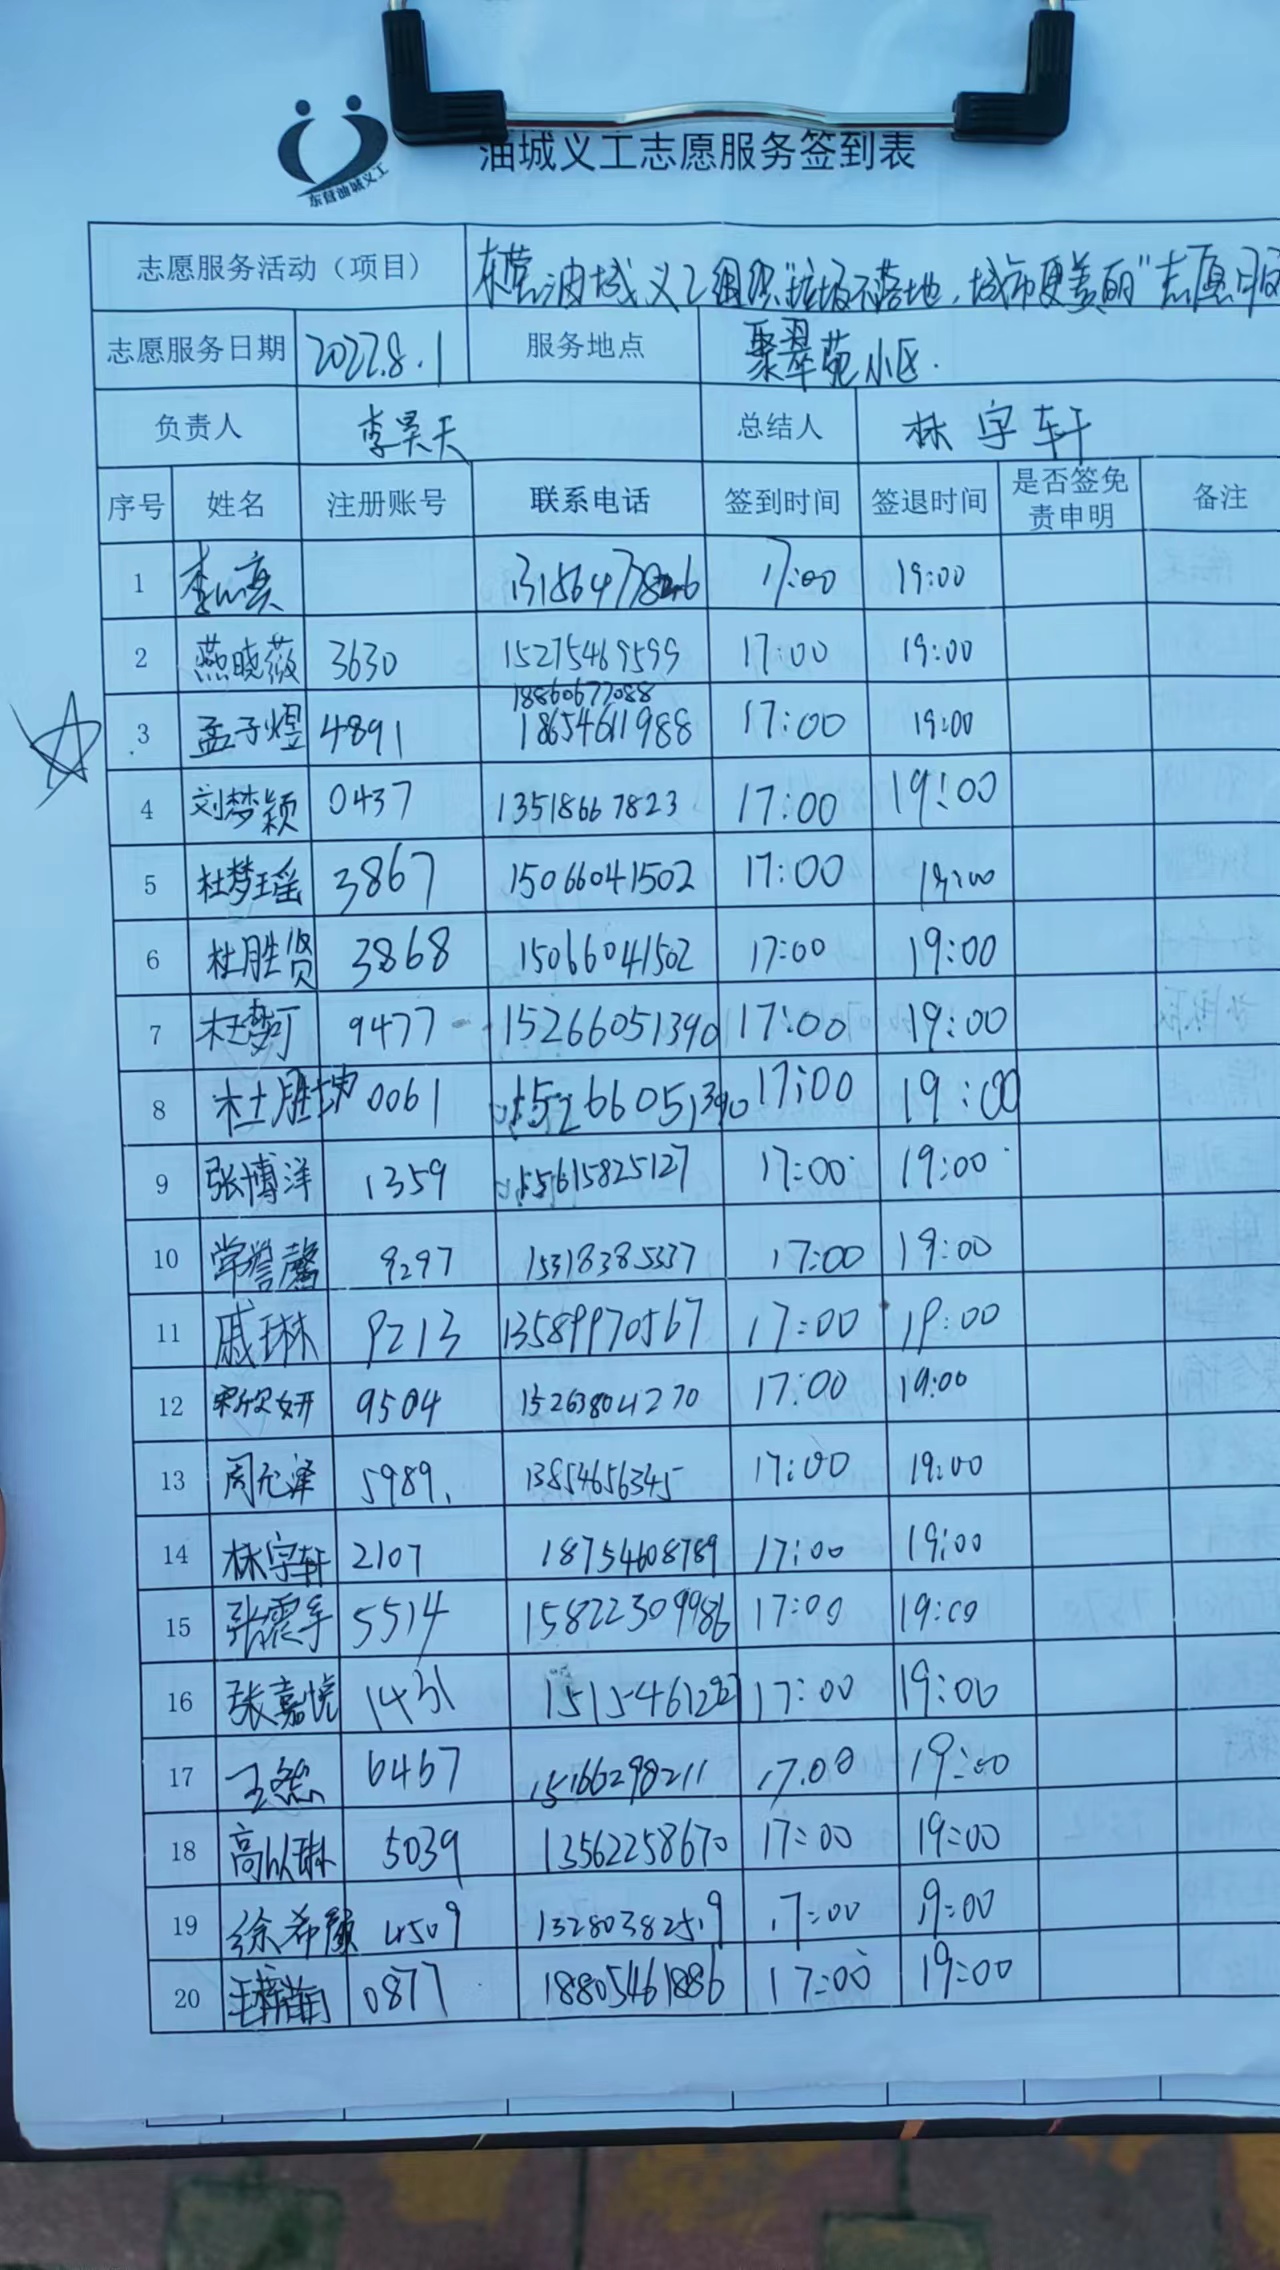 东营油城义工
油城义工志愿服务签到表
志愿服务活动（项目） 东营油城义工组织"垃圾不落地，城市更美丽"志愿服
志愿服务日期 2022.8.1 服务地点 聚翠苑小区.
负责人 李昊天 总结人 林宇轩
序号 姓名 注册账号 联系电话 签到时间 签退时间 是否签免责申明 备注
1 17:00 19:00
2 燕晓薇 3630 15275469599 17:00 19:00
18860677088
3 孟子煜 4891 18654611988 17:00 19:00
4 刘梦颖 0437 13518667823 17:00 19:00
5 杜梦瑶 3867 15066041502 17:00 19:00
6 杜胜贤 3868 15066041502 17:00 19:00
7 杜梦可 9477 15266051390 17:00 19:00
8 杜胜坤 0061 15266051390 17:00 19:00
9 张博洋 1359 15615825127 17:00 19:00
10 常誉馨 9297 15318385337 17:00 19:00
11 戚琳 9213 13589970567 17:00 19:00
12 宋欣妍 9504 15263804270 17:00 19:00
13 周允泽 5989. 13854656345 17:00 19:00
14 林宇轩 2107 18754608789 17:00 19:00
15 张震宇 5514 15822309986 17:00 19:00
16 张嘉悦 1431 17:00 19:00
17 6467 15166298211 17.00 19:00
18 高以琳 5039 13562258670 17:00 19:00
19 徐希颜 4509 13280382519 17:00 19:00
20 0877 18805461886 17:00 19:00